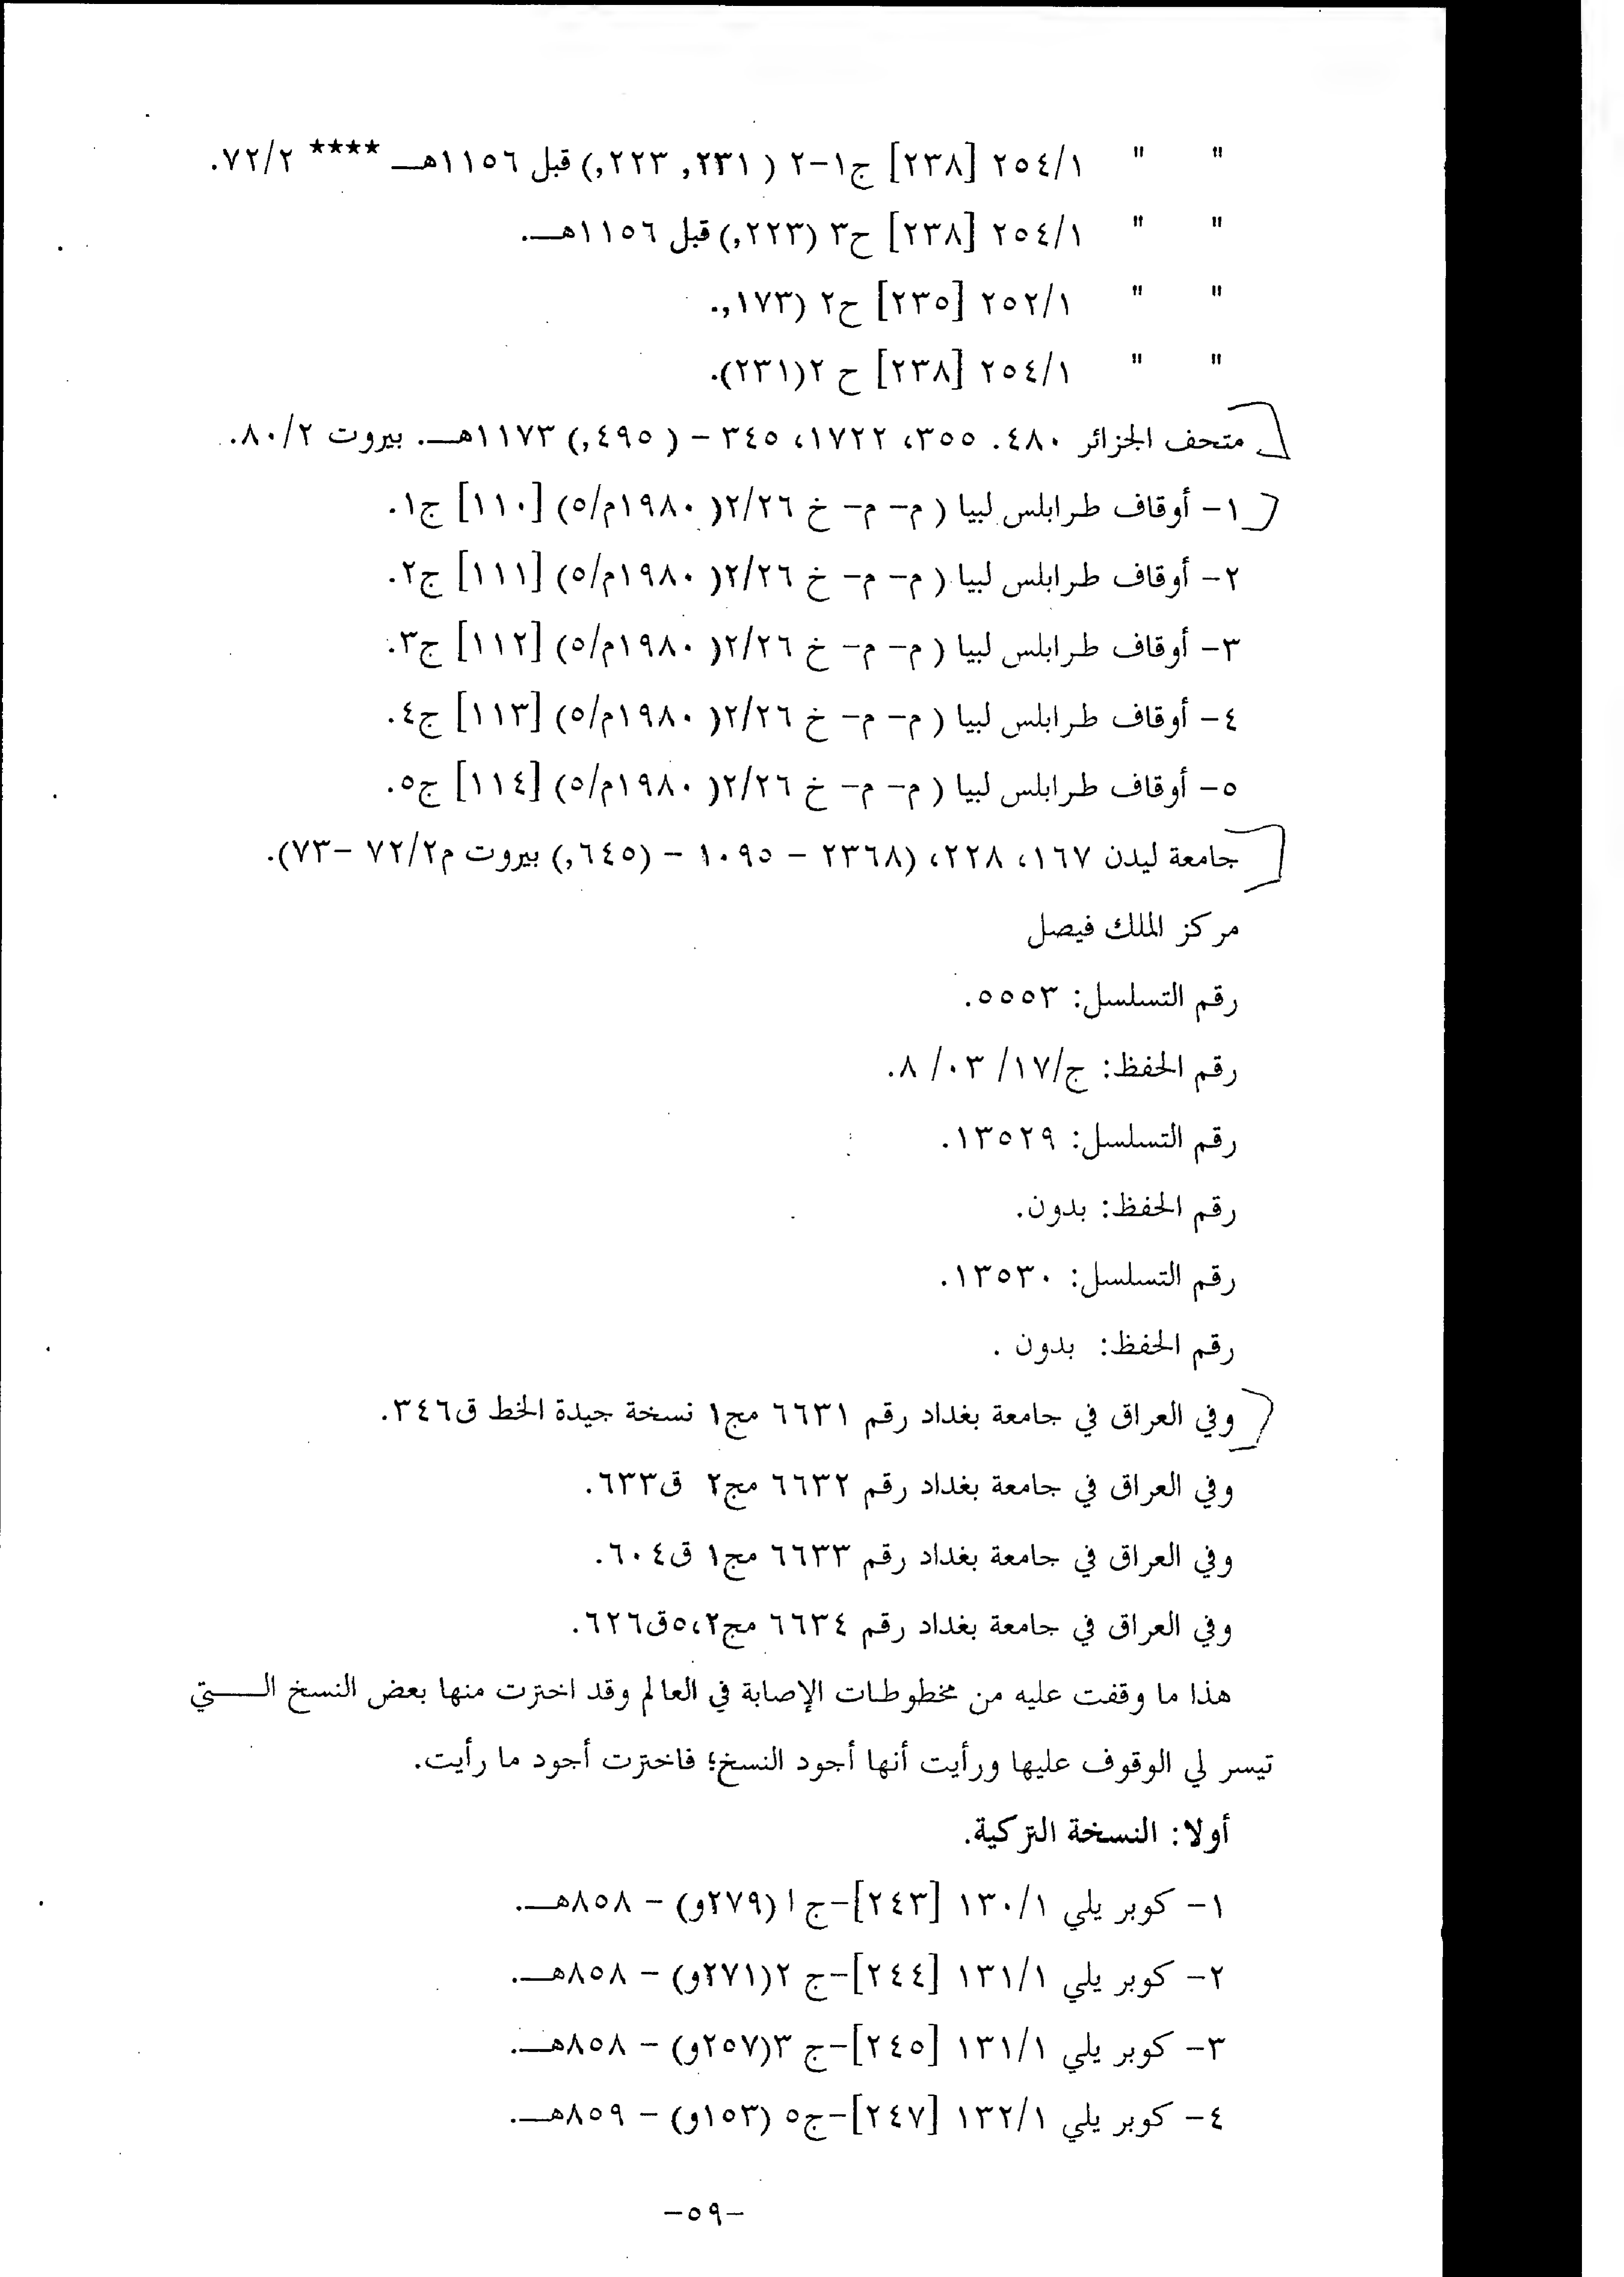 " " ٢٥٤/١ [٢٣٨] ج١-٢ ( ٢٣١, ٢٢٣,) قبل ١١٥٦هـ **** ٧٢/٢.
" " ٢٥٤/١ [٢٣٨] ح٣ (٢٢٣,) قبل ١١٥٦هـ.
" " ٢٥٢/١ [٢٣٥] ح٢ (١٧٣,.
" " ٢٥٤/١ [٢٣٨] ح ٢(٢٣١).
متحف الجزائر ٤٨٠. ٣٥٥، ١٧٢٢، ٣٤٥ - ( ٤٩٥,) ١١٧٣هـ. بيروت ٨٠/٢.
١- أوقاف طرابلس لبيا ( م- م- خ ٢/٢٦( ١٩٨٠م/٥) [١١٠] ج١.
٢- أوقاف طرابلس لبيا ( م- م- خ ٢/٢٦( ١٩٨٠م/٥) [١١١] ج٢.
٣- أوقاف طرابلس لبيا ( م- م- خ ٢/٢٦( ١٩٨٠م/٥) [١١٢] ج٣.
٤- أوقاف طرابلس لبيا ( م- م- خ ٢/٢٦( ١٩٨٠م/٥) [١١٣] ج٤.
٥- أوقاف طرابلس لبيا ( م- م- خ ٢/٢٦( ١٩٨٠م/٥) [١١٤] ج٥.
جامعة ليدن ١٦٧، ٢٢٨، (٢٣٦٨ - ١٠٩٥ - (٦٤٥,) بيروت م٧٢/٢ -٧٣).
مركز الملك فيصل
رقم التسلسل: ٥٥٥٣.
رقم الحفظ: ج/١٧/ ٠٣/ ٨.
رقم التسلسل: ١٣٥٢٩.
رقم الحفظ: بدون.
رقم التسلسل: ١٣٥٣٠.
رقم الحفظ: بدون .
وفي العراق في جامعة بغداد رقم ٦٦٣١ مج١ نسخة جيدة الخط ق٣٤٦.
وفي العراق في جامعة بغداد رقم ٦٦٣٢ مج٢ ق٦٣٣.
وفي العراق في جامعة بغداد رقم ٦٦٣٣ مج١ ق٦٠٤.
وفي العراق في جامعة بغداد رقم ٦٦٣٤ مج٢،٥ق٦٢٦.
هذا ما وقفت عليه من مخطوطات الإصابة في العالم وقد اخترت منها بعض النسخ الـــتي
تيسر لي الوقوف عليها ورأيت أنها أجود النسخ؛ فاخترت أجود ما رأيت.
أولا: النسخة التركية.
١- كوبر يلي ١٣٠/١ [٢٤٣]-ج ١ (٢٧٩و) - ٨٥٨هـ.
٢- كوبر يلي ١٣١/١ [٢٤٤]-ج ٢(٢٧١و) - ٨٥٨هـ.
٣- كوبر يلي ١٣١/١ [٢٤٥]-ج ٣(٢٥٧و) - ٨٥٨هـ.
٤- كوبر يلي ١٣٢/١ [٢٤٧]-ج٥ (١٥٣و) - ٨٥٩هـ.
-٥٩-